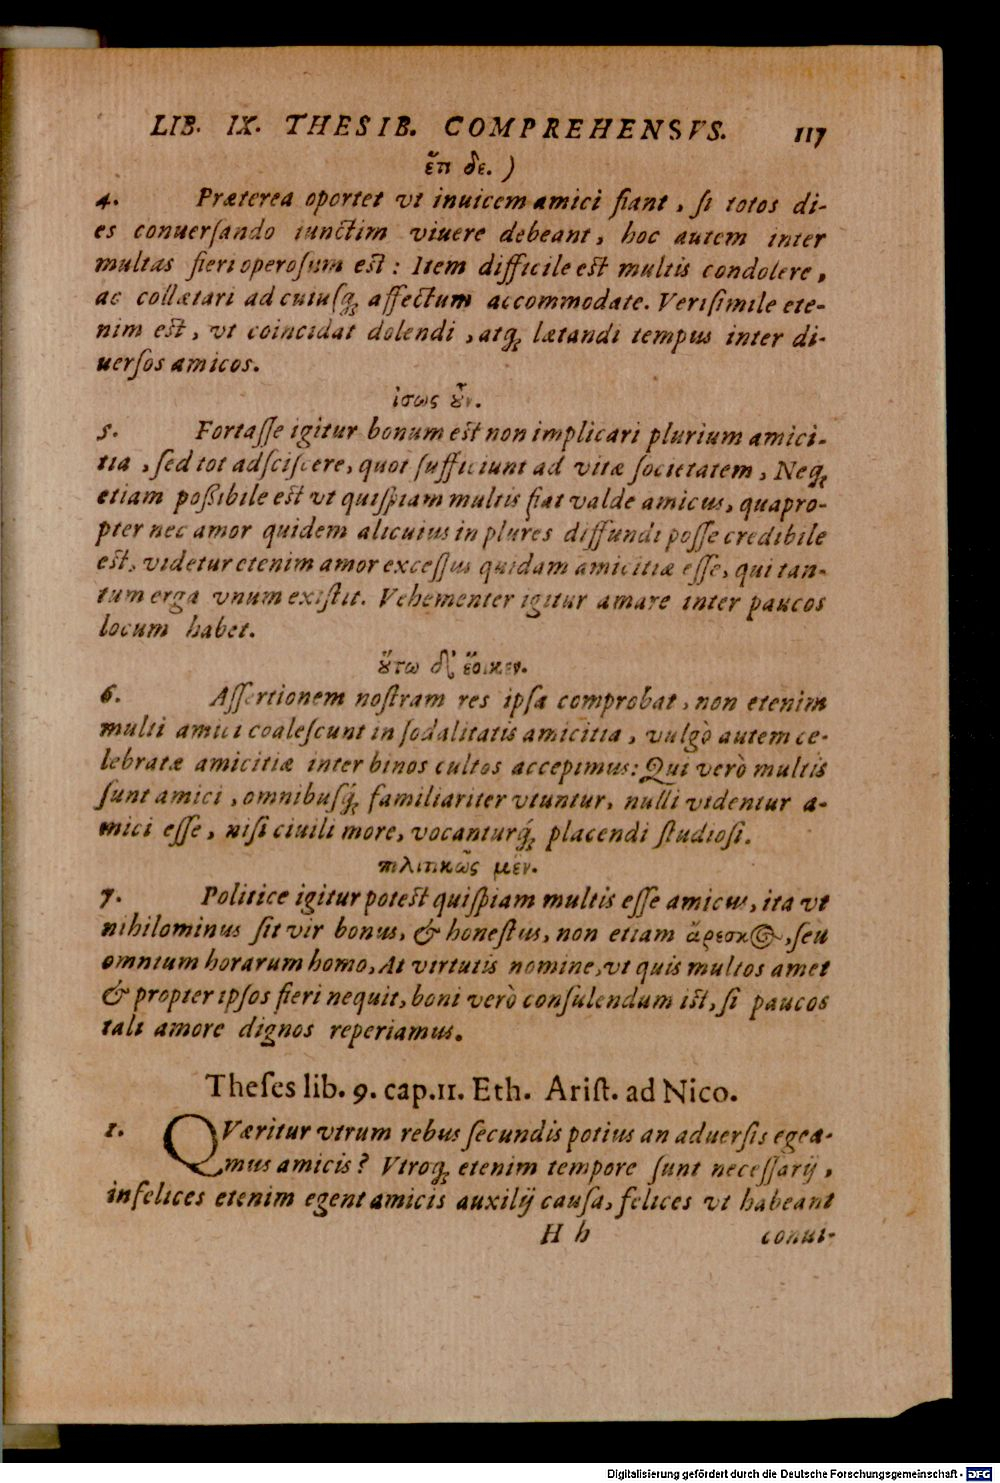 LIB. IX. THESIB. COMPREHENSVS. 117
ἔπ δε. )
4. Præterea oportet vt inuicem amici fiant, ſi totos di-
es conuerſando iunctim viuere debeant, hoc autem inter
multas fieri operoſum eſt: Item difficile eſt multis condolere,
ac collætari ad cuiuſq́; affectum accommodate. Veriſimile ete-
nim eſt, vt coincidat dolendi, atq; lætandi tempus inter di-
uerſos amicos.
ἰσως ȣ̃ν.
5. Fortaſſe igitur bonum eſt non implicari plurium amici-
tia, ſed tot adſciſcere, quot ſufficiunt ad vitæ ſocietatem, Neq;
etiam poßibile eſt vt quiſpiam multis fiat valde amicus, quapro-
pter nec amor quidem alicuius in plures diffundi poſſe credibile
eſt, videtur etenim amor exceſſus quidam amicitiæ eſſe, qui tan-
tum erga vnum exiſtit. Vehementer igitur amare inter paucos
locum habet.
ȣ̔́τω δ' ἔοικεν.
6. Aſſertionem noſtram res ipſa comprobat, non etenim
multi amici coaleſcunt in ſodalitatis amicitia, vulgò autem ce-
lebratæ amicitiæ inter binos cultos accepimus: Qui verò multis
ſunt amici, omnibuſq́; familiariter vtuntur, nulli videntur a-
mici eſſe, niſi ciuili more, vocanturq́; placendi ſtudioſi.
πολιτικῶς μὲν.
7. Politice igitur poteſt quiſpiam multis eſſe amicus, ita vt
nihilominus ſit vir bonus, & honeſtus, non etiam ἄρεσκος, ſeu
omnium horarum homo, At virtutis nomine, vt quis multos amet
& propter ipſos fieri nequit, boni verò conſulendum iſt, ſi paucos
tali amore dignos reperiamus.
Theſes lib. 9. cap. 11. Eth. Ariſt. ad Nico.
1. QVæritur vtrum rebus ſecundis potius an aduerſis egea-
mus amicis? Vtroq; etenim tempore ſunt neceſſarij,
infelices etenim egent amicis auxilij cauſa, felices vt habeant
H h conui-
Digitalisierung gefördert durch die Deutsche Forschungsgemeinschaft - DFG